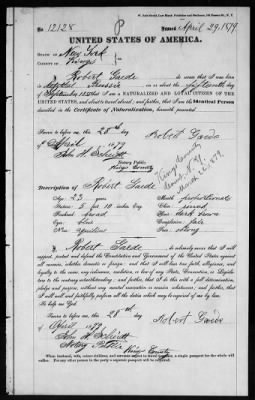 No. 12128
Issued April 29, 1879
UNITED STATES OF AMERICA.
STATE OF New York
COUNTY OF Kings
I, Robert Garde do swear that I was born
in Russia on the fifteenth day
of September 18 that I am a NATURALIZED AND LOYAL CITIZEN OF THE
UNITED STATES, and about to travel abroad; and further, that I am the Identical Person
described in the Certificate of Naturalization, herewith presented
Sworn to before me, this 28th day
of April 1879
Robert Garde
John H. Schmidt
Notary Public
Kings County
Kings County
March 1879
Description of Robert Garde
Age: 23 years
Stature: 5 feet 10 inches Eng.
Forehead: broad
Eyes: blue
Nose: aquiline
Mouth: proportionate
Chin: round
Hair: dark brown
Complexion: fair
Face: oval
I, Robert Garde do solemnly swear that I will
support, protect and defend the Constitution and Government of the United States against
all enemies, whether domestic or foreign; and that I will bear true faith, allegiance, and
loyalty to the same, any ordinance, resolution, or law of any State, Convention, or Legisla-
ture to the contrary notwithstanding; and further, that I do this with a full determination,
pledge and purpose, without any mental reservation or evasion whatsoever; and further, that
I will well and faithfully perform all the duties which may be required of me by law.
So help me God.
Sworn to before me, this 28th day
of April 1879
Robert Garde
John H. Schmidt
Notary Public Kings County
When husband, wife, minor children, and servants expect to travel together, a single passport for the whole will
suffice. For any other person in the party a separate passport will be required.